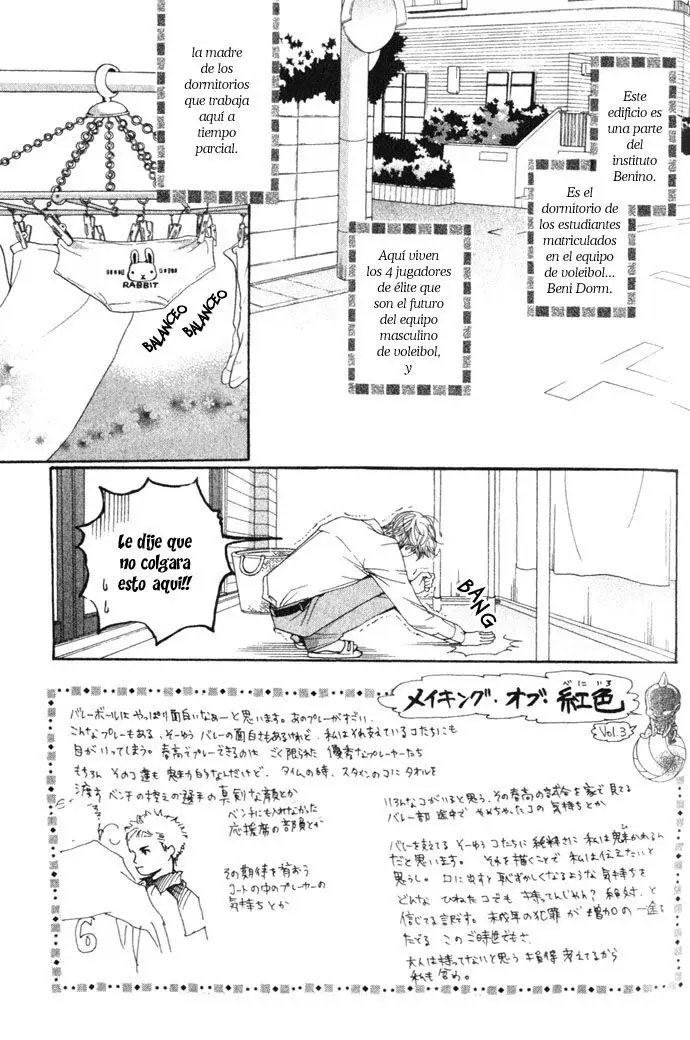 Este
edificio es
una parte
del
instituto
Benino.
Es el
dormitorio de
los estudiantes
matriculados
en el equipo
de voleibol...
Beni Dorm.
Aquí viven
los 4 jugadores
de élite que
son el futuro
del equipo
masculino
de voleibol,
y
la madre
de los
dormitorios
que trabaja
aquí a
tiempo
parcial.
RABBIT
BALANCEO
BALANCEO
Le dije que
no colgara
esto aquí!!
BANG
メイキング・オブ・紅色
べにいろ
Vol.3
バレーボールはやっぱり面白いなぁーと思います。あのプレーがすごい、
こんなプレーもある、そーゆうバレーの面白さもあるけれど、私はそれを支えているコたちにも
目がいってしまう。春高でプレーできるのは ごく限られた 優秀なプレーヤーたち
もちろん そのコ達も 魅力的なんだけど、タイムの時、スタメンのコにタオルを
渡す ベンチの控えの選手の真剣な顔とか
ベンチにも入れなかった
応援席の部員とか
その期待を背おう
コートの中のプレーヤーの
気持ちとか
6
いろんなコがいると思う、その春高の試合を家で見てる
バレー部 途中で やめちゃったコの 気持ちとか
バレーを支えてる そーゆうコたちに 純粋さに 私は魅かれるん
だと思います。それを描くことで 私は伝えたいと
思うし。口に出すと恥ずかしくなるような気持ちを
どんな ひねたコでも 持ってんじゃん？絶対、と
信じてる訳です。未成年の犯罪が増加の一途を
たどる このご時世でもさ。
大人は持ってないと思う 損得 考えてるから
私も含め。